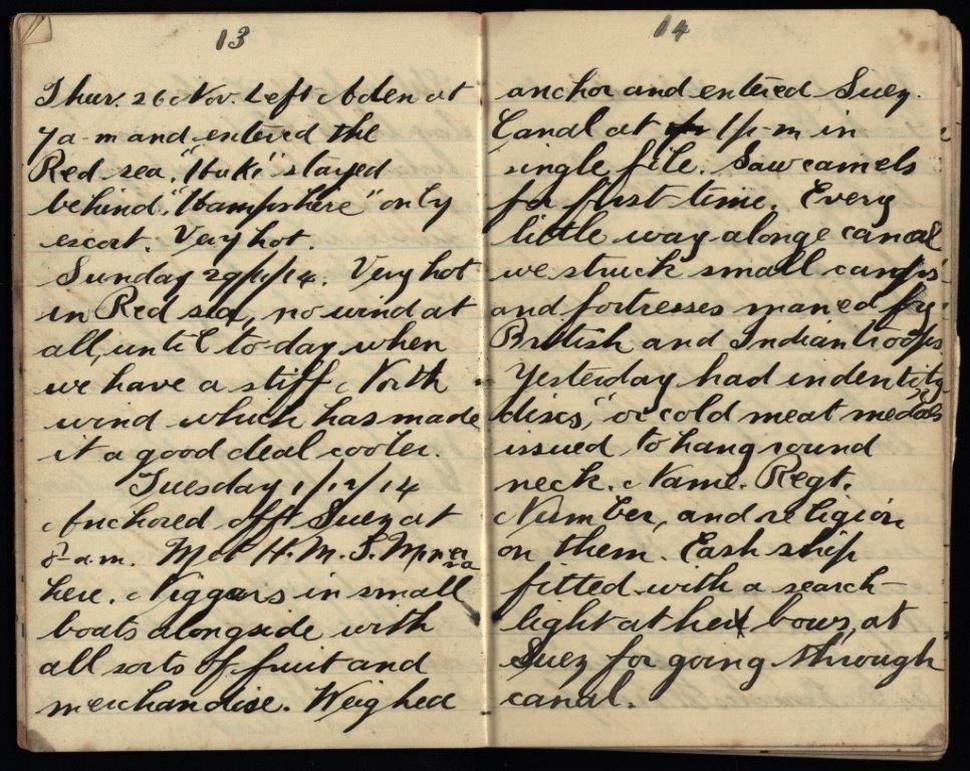 13
Thur. 26 Nov. Left Aden at
7 a-m and entered the
Red sea. "Ibuki" stayed
behind. "Hampshire" only
escort. Very hot.
Sunday 29/11/14. Very hot
in Red sea, no wind at
all, until to-day when
we have a stiff North
wind which has made
it a good deal cooler.
Tuesday 1/12/14
Anchored off Suez at
8 a.m. Met H.M.S. Minerva
here. Niggers in small
boats alongside with
all sorts of fruit and
merchandise. Weighed
14
anchor and entered Suez.
Canal at 1 p-m in
single file. Saw camels
for first time. Every
little way alonge canal
we struck small camps
and fortresses maned by
British and Indian troops
Yesterday had indentity
discs, "or cold meat medals
issued to hang round
neck. Name. Regt.
Number, and religion
on them. Each ship
fitted with a search-
light at her bows, at
Suez for going through
canal.